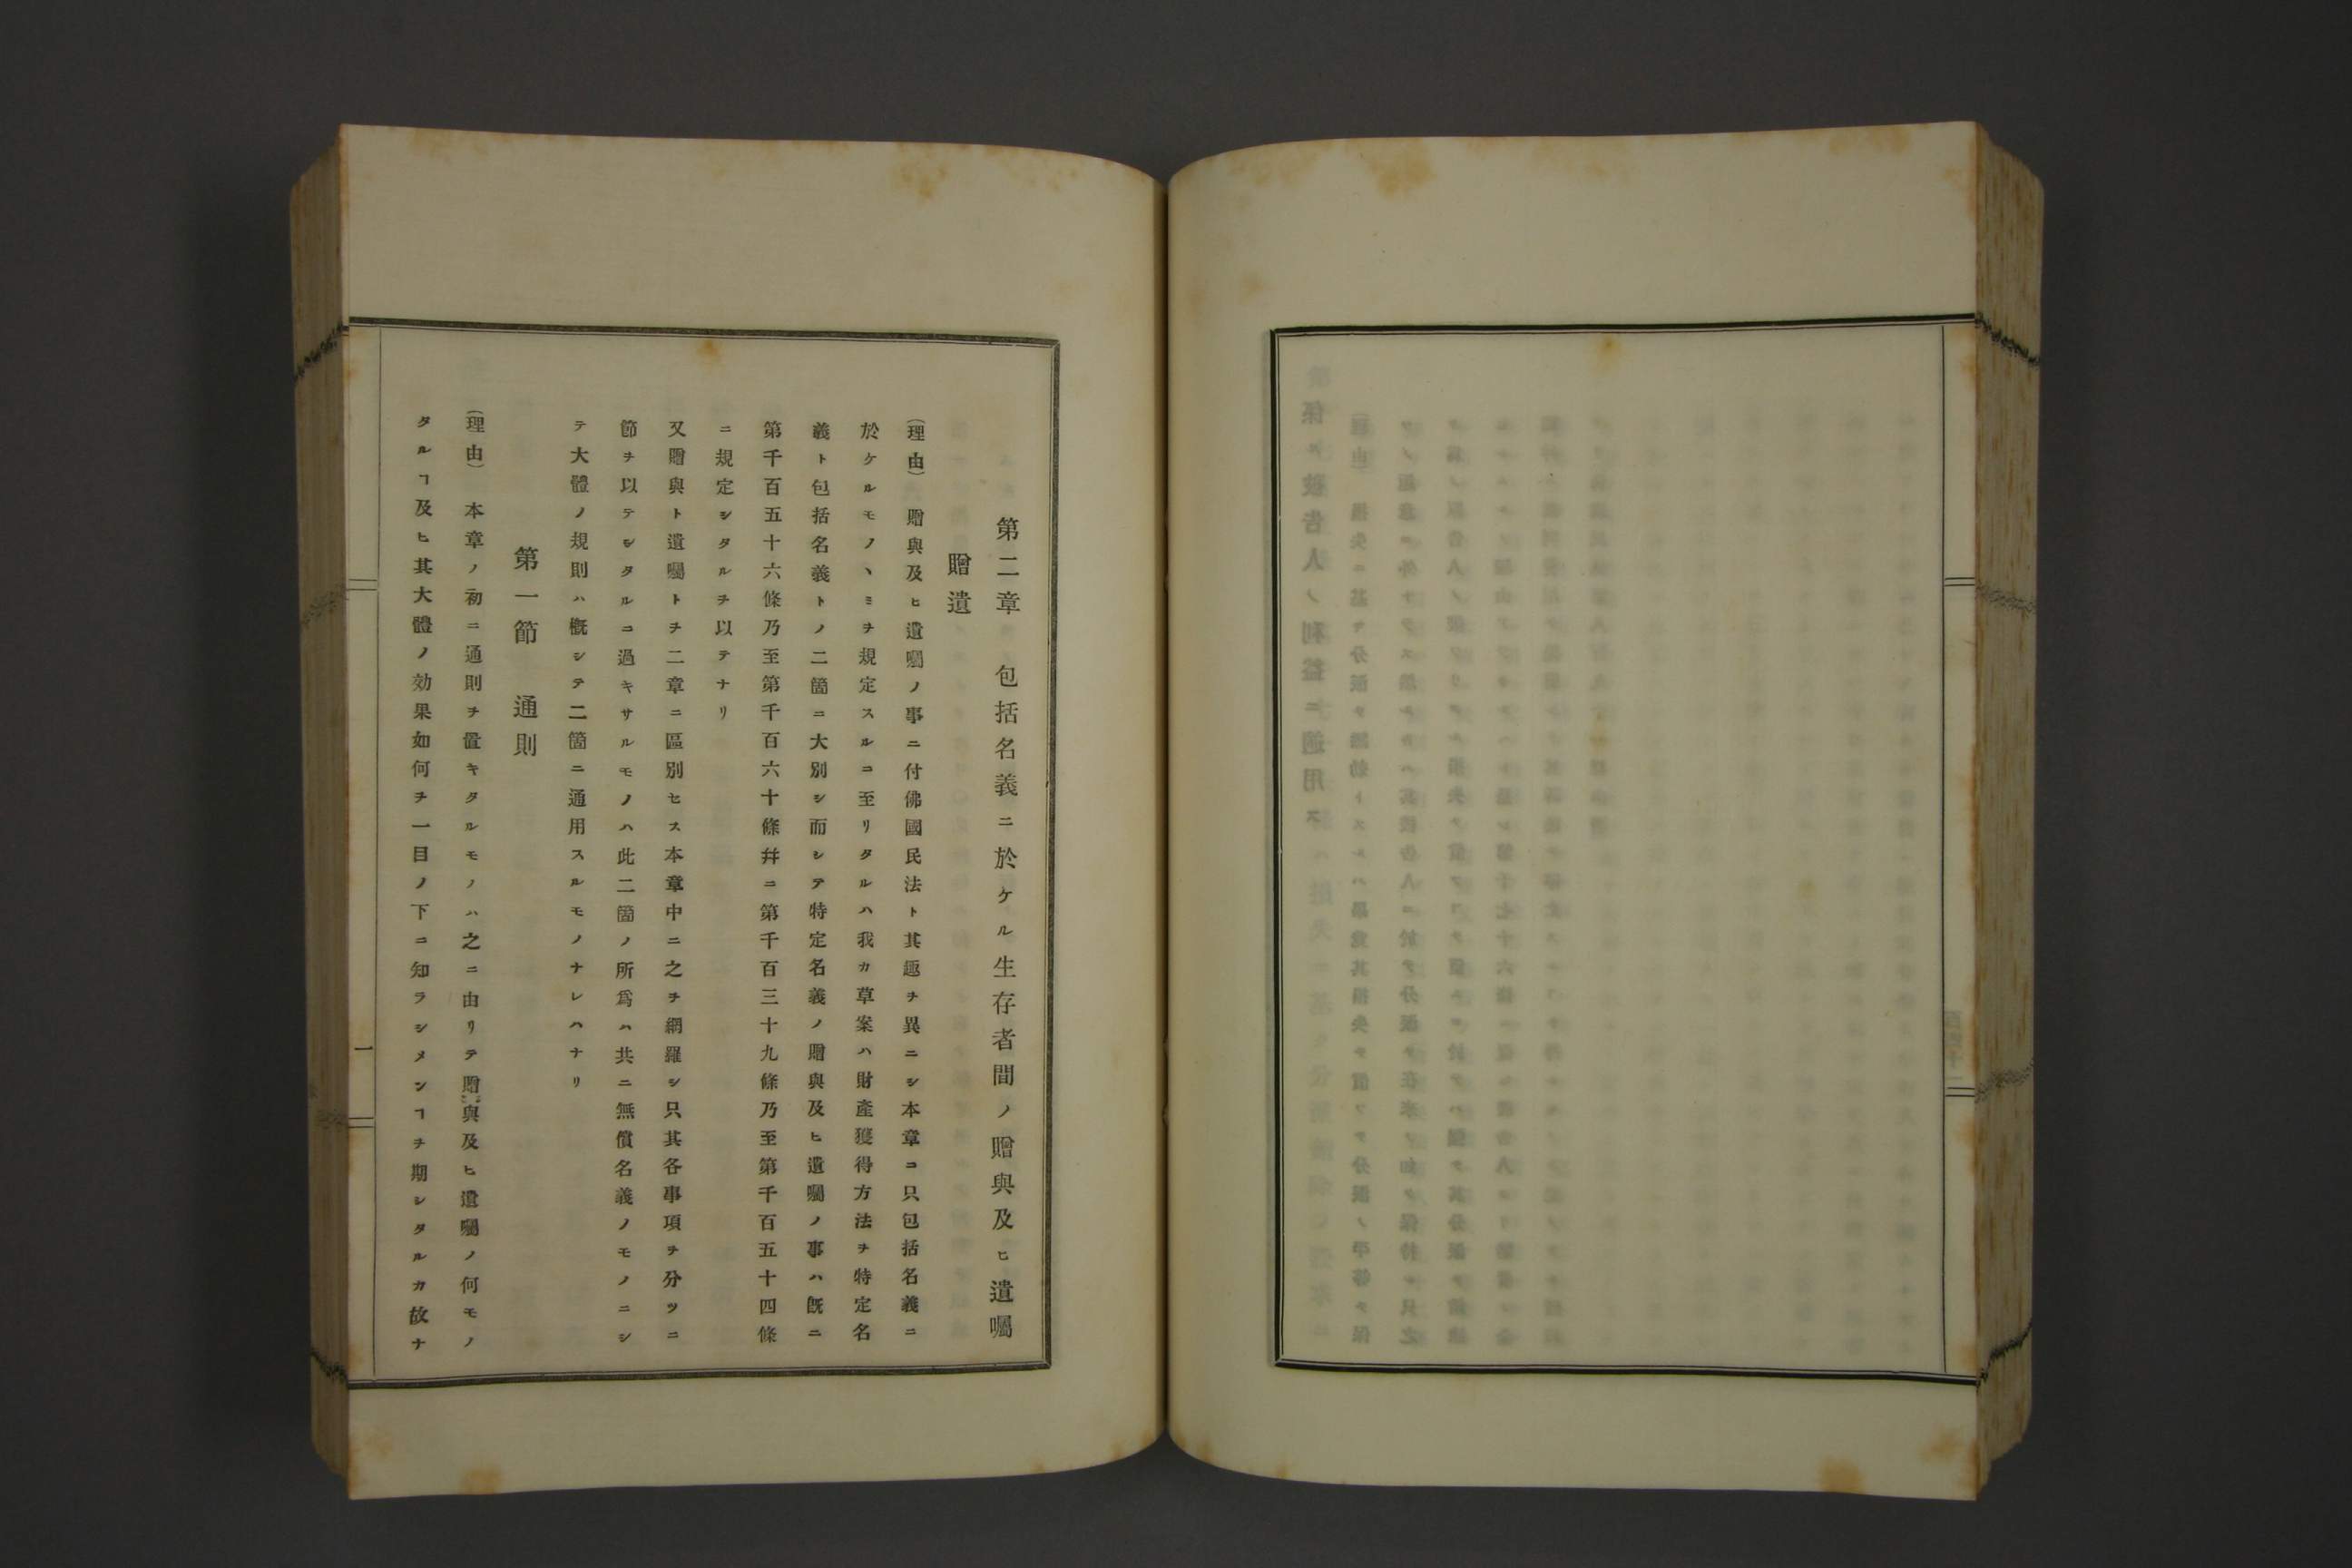 第二章　包括名義ニ於ケル生存者間ノ贈與及ヒ遺囑
贈遺
（理由）　贈與及ヒ遺囑ノ事ニ付佛國民法ト其趣ヲ異ニシ本章ニ只包括名義ニ
於ケルモノヽミヲ規定スルニ至リタルハ我カ草案ハ財產獲得方法ヲ特定名
義ト包括名義トノ二箇ニ大別シ而シテ特定名義ノ贈與及ヒ遺囑ノ事ハ既ニ
第千百五十六條乃至第千百六十條幷ニ第千百三十九條乃至第千百五十四條
ニ規定シタルヲ以テナリ
又贈與ト遺囑トヲ二章ニ區別セス本章中ニ之ヲ網羅シ只其各事項ヲ分ツニ
節ヲ以テシタルニ過キサルモノハ此二箇ノ所爲ハ共ニ無償名義ノモノニシ
テ大體ノ規則ハ槪シテ二箇ニ通用スルモノナレハナリ
第一節　通則
（理由）　本章ノ初ニ通則ヲ置キタルモノハ之ニ由リテ贈與及ヒ遺囑ノ何モノ
タルヿ及ヒ其大體ノ効果如何ヲ一目ノ下ニ知ラシメンヿヲ期シタルカ故ナ
一